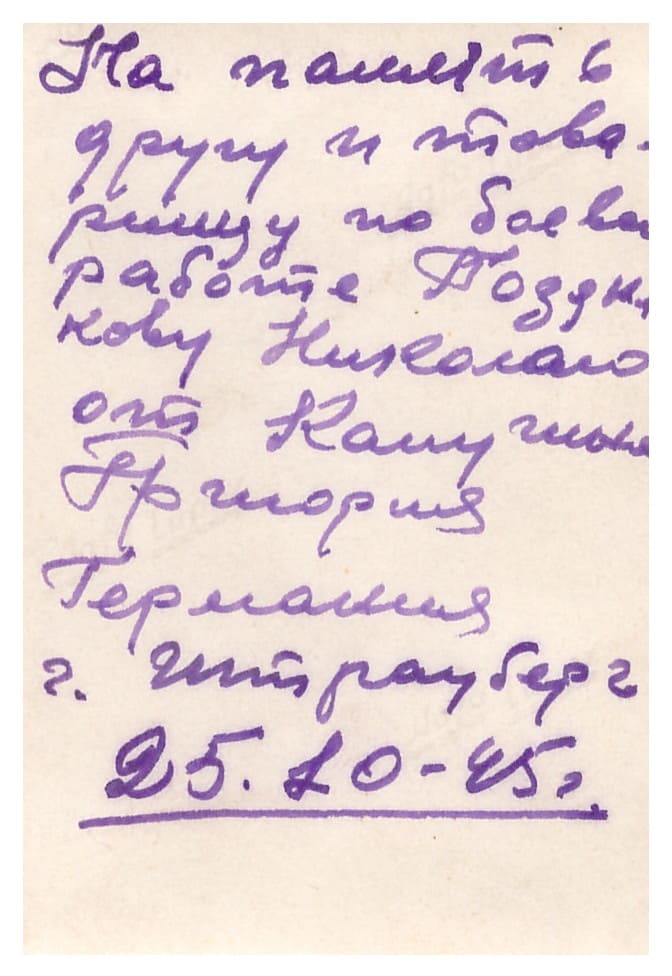 На память
другу и това-
рищу по боевой
работе Поддуб-
кову Николаю
от
Григория
Германия
г. Штрауберг
25.10-45г.